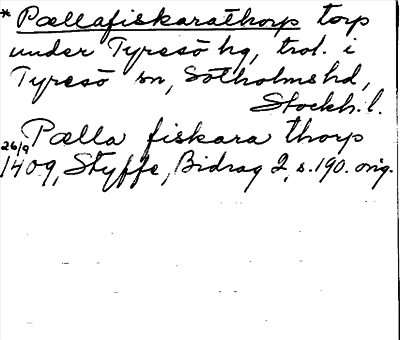 * Pællafiskarathorp torp
under Tyresö hg, trol. i
Tyresö sn, Sotholms hd,
Stockh. l.
Pælla fiskara thorp
26/9 1409, Styffe, Bidrag 2, s. 190. orig.